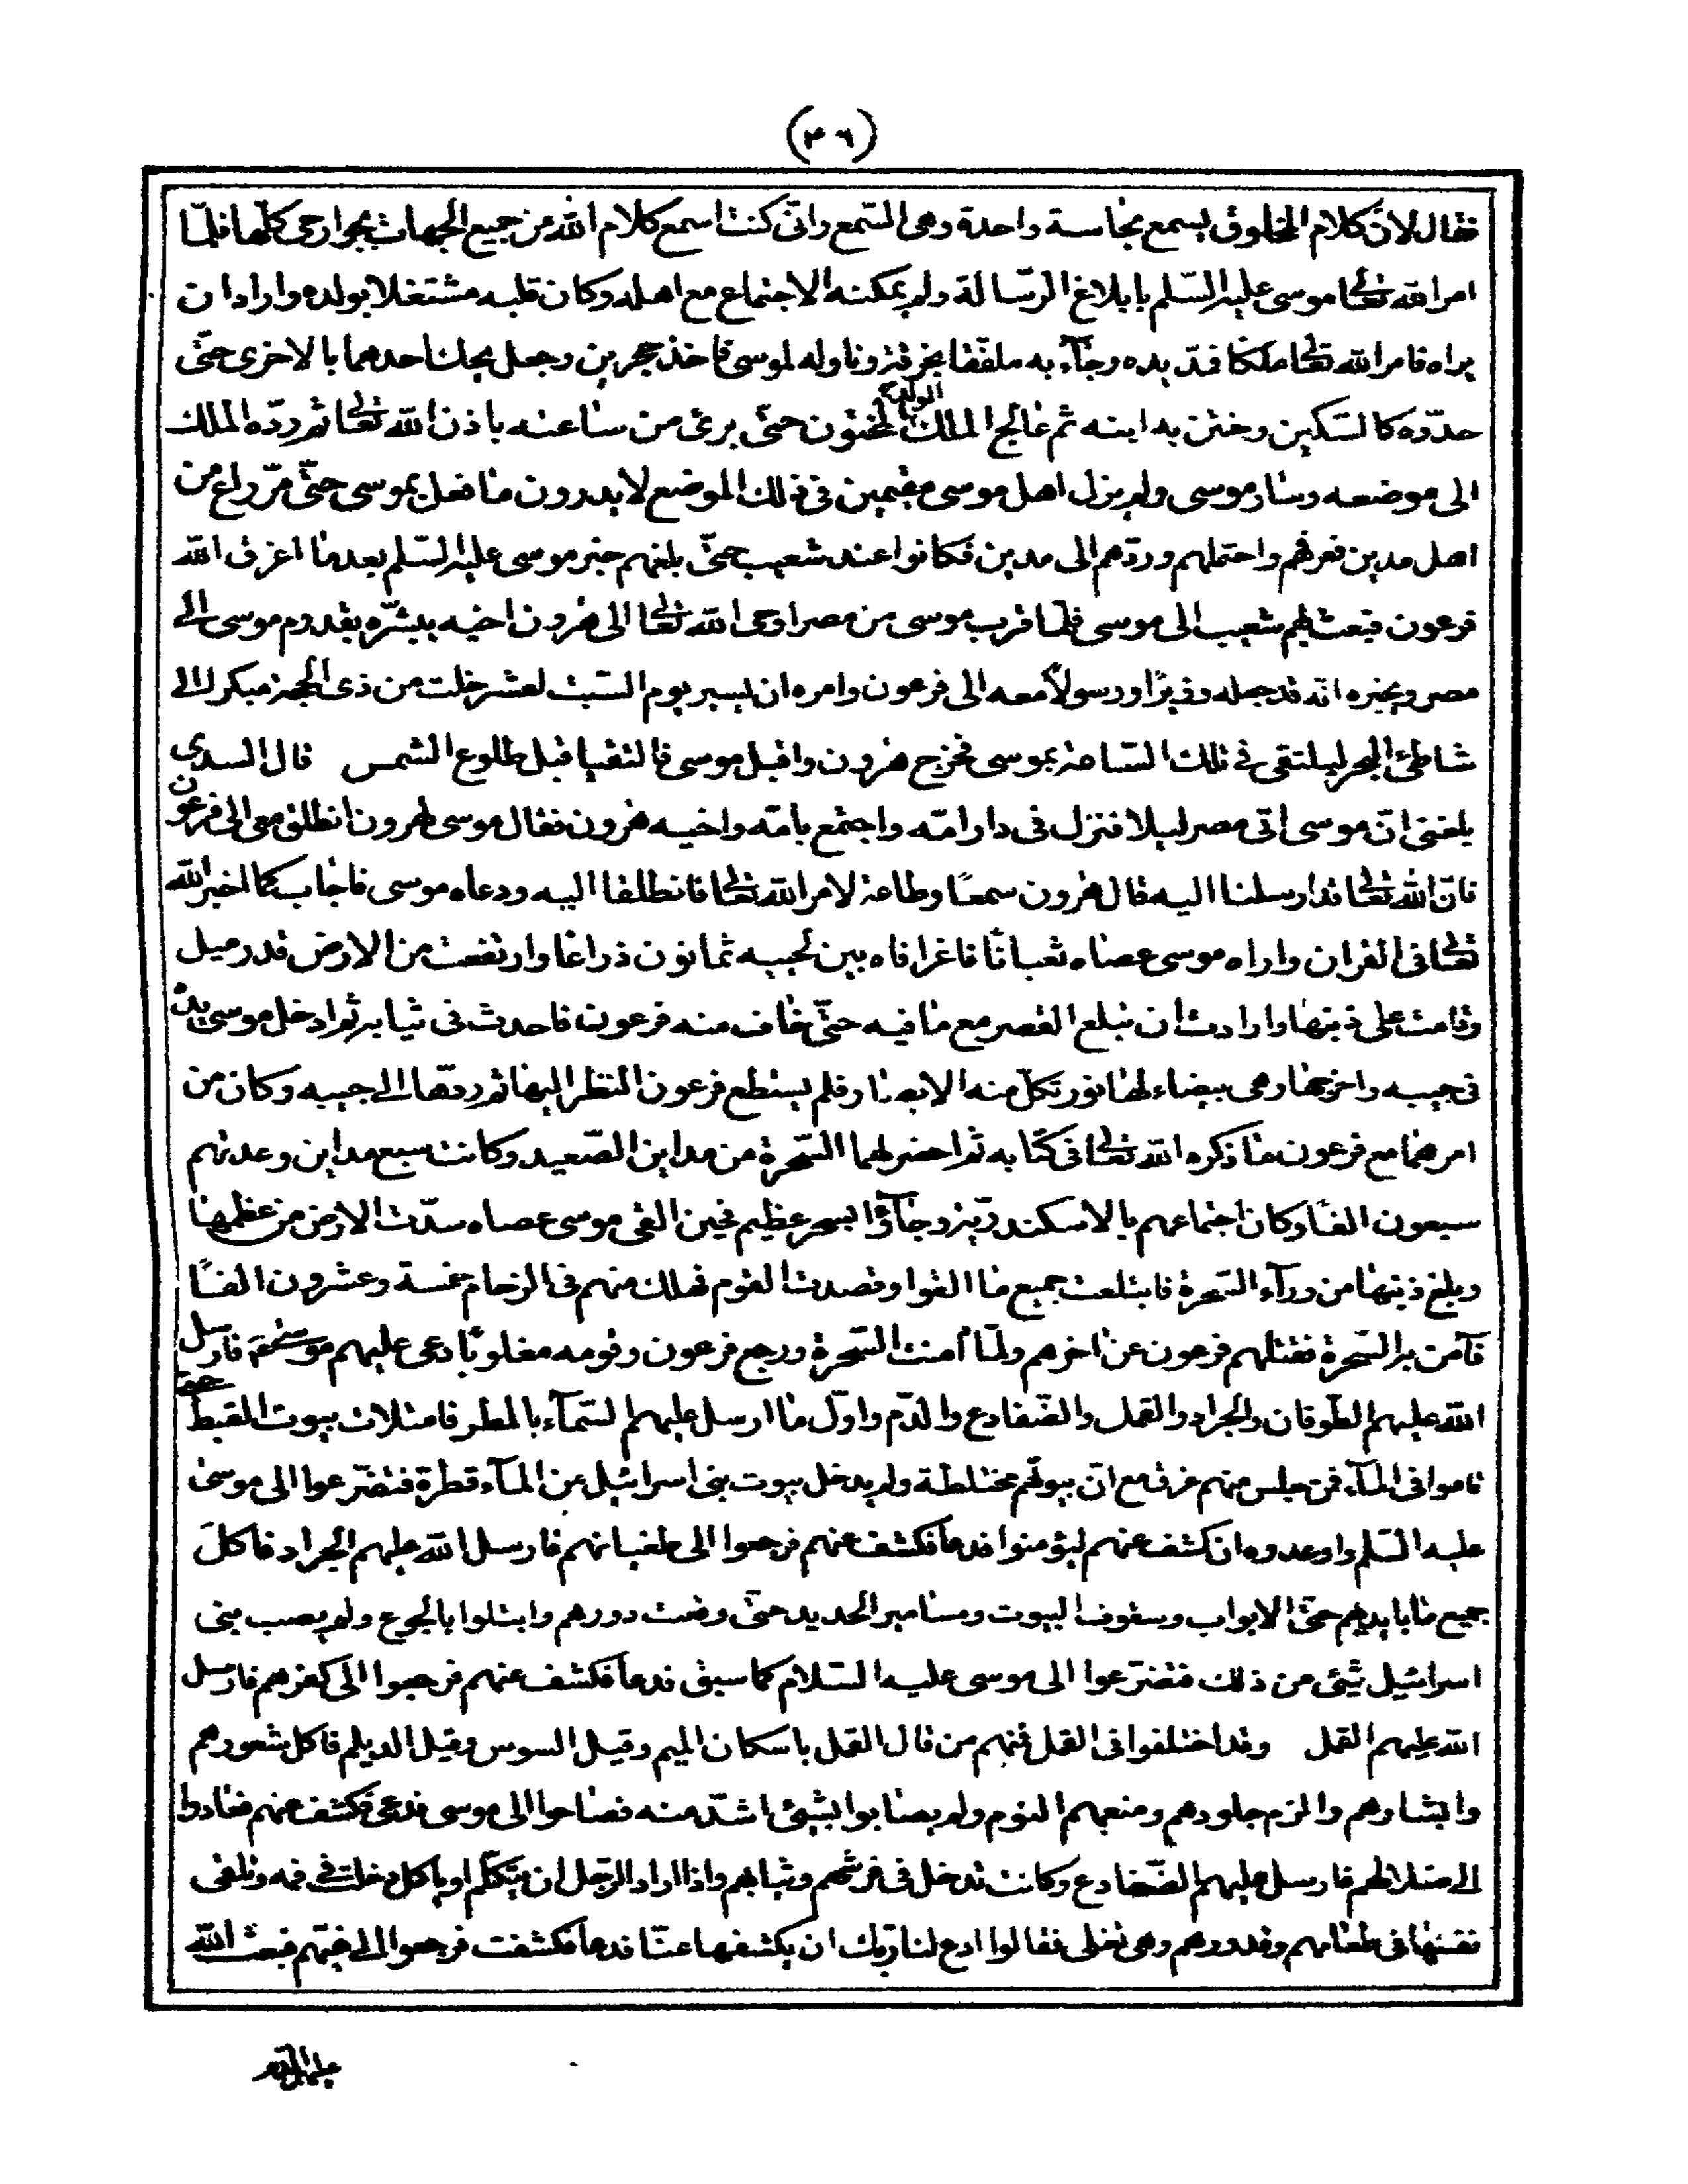 (٤٦)
فقال لان كلام المخلوق يسمع بحاسة واحدة وهى السّمع وانّى كنت اسمع كلام الله من جميع الجهات بجوارحى كلّها فلمّا
امر الله تعالى موسى عليه السّلم بابلاغ الرّسالة ولم يمكنه الاجتماع مع اهله وكان قلبه مشتغلا بولده واراد ان
يراه فامر الله تعالى ملكا فمدّ يده وجآء به ملفّفا بخرقة وناوله لموسى فاخذ حجرين وجعل يحك احدهما بالاخرى حتّى
حدّده كالسّكين وختن به ابنه ثم عالج الملك الولد المختون حتّى برئ من ساعته باذن الله تعالى ثم ردّه الملك
الى موضعه وسار موسى ولم يزل اهل موسى مقيمين فى ذلك الموضع لا يدرون ما فعل بموسى حتّى مرّ راع من
اهل مدين فعرفهم واحتملهم وردّهم الى مدين فكانوا عند شعيب حتّى بلغهم خبر موسى عليه السّلم بعدما اغرق الله
فرعون فبعث بهم شعيب الى موسى فلما قرب موسى من مصر اوحى الله تعالى الى هرون اخيه يبشّره بقدوم موسى الى
مصر ويخبره انه قد جعله وزيرًا ورسولًا معه الى فرعون وامره ان يسير يوم السّبت لعشر خلت من ذى الحجة مبكرا الى
شاطئ البحر ليلتقى فى تلك السّاعة بموسى فخرج هرون واقبل موسى فالتقيا قبل طلوع الشمس قال السدى
بلغنى انّ موسى اتى مصر ليلا فنزل فى دار امّه واجتمع بامّه واخيه هرون فقال موسى لهرون انطلق معى الى فرعون
فانّ الله تعالى قد ارسلنا اليه قال هرون سمعًا وطاعة لامر الله تعالى فانطلقا اليه ودعاه موسى فاجاب كما اخبر الله
تعالى فى القران واراه موسى عصاه ثعبانًا فاغرا فاه بين لحييه ثمانون ذراعا وارتفعت من الارض قدر ميل
وقامت على ذنبها وارادت ان تبلع القصر مع ما فيه حتّى خاف منه فرعون فاحدث فى ثيابه ثم ادخل موسى يده
فى جيبه واخرجها وهى بيضاء لها نور تكلّ منه الابصار فلم يستطع فرعون النظر اليها ثم ردّها الى جيبه وكان من
امرهما مع فرعون ما ذكره الله تعالى فى كتابه ثم احضر لهما السّحرة من مداين الصّعيد وكانت سبع مداين وعدتهم
سبعون الفًا وكان اجتماعهم بالاسكندريّة وجآؤا بسحر عظيم فحين القى موسى عصاه سدّت الارض من عظمها
وبلغ ذنبها من ورآء السّحرة فابتلعت جميع ما القوا وقصدت القوم فهلك منهم فى الزحام خمسة وعشرون الفًا
فآمن به السّحرة فقتلهم فرعون عن اخرهم ولمّا آمنت السّحرة ورجع فرعون وقومه مغلوبًا دعى عليهم موسى فارسل
الله عليهم الطّوفان والجراد والقمل والضّفادع والدّم واوّل ما ارسل عليهم السّمآء بالمطر فامتلات بيوت القبط حتى
قاموا فى المآء فمن جلس منهم غرق مع انّ بيوتهم مختلطة ولم يدخل بيوت بنى اسرائيل من المآء قطرة فتضرّعوا الى موسى
عليه السّلم واوعدوه ان كشف عنهم ليؤمنوا فدعا فكشف عنهم فرجعوا الى طغيانهم فارسل الله عليهم الجراد فاكل
جميع ما بايديهم حتّى الابواب وسقوف البيوت ومسامير الحديد حتّى وقعت دورهم وابتلوا بالجوع ولم يصب بنى
اسرائيل شئ من ذلك فتضرّعوا الى موسى عليه السّلام كما سبق فدعا فكشف عنهم فرجعوا الى كفرهم فارسل
الله عليهم القمل وقد اختلفوا فى القمل فمنهم من قال القمل باسكان الميم وقيل السوس وقيل الديلم فاكل شعورهم
وابشارهم والزم جلودهم ومنعهم النوم ولم يصابوا بشئ اشدّ منه فصاحوا الى موسى فدعى فكشف عنهم فعادوا
الى ضلالهم فارسل عليهم الضّفادع وكانت تدخل فى فرشهم وثيابهم واذا اراد الرّجل ان يتكلّم او ياكل دخلت فى فمه وتلقى
نفسها فى طعامهم وقدورهم وهى تغلى فقالوا ادع لنا ربّك ان يكشفها عنّا فدعا فكشفت فرجعوا الى غيّهم فبعث الله
عليهم الدّم